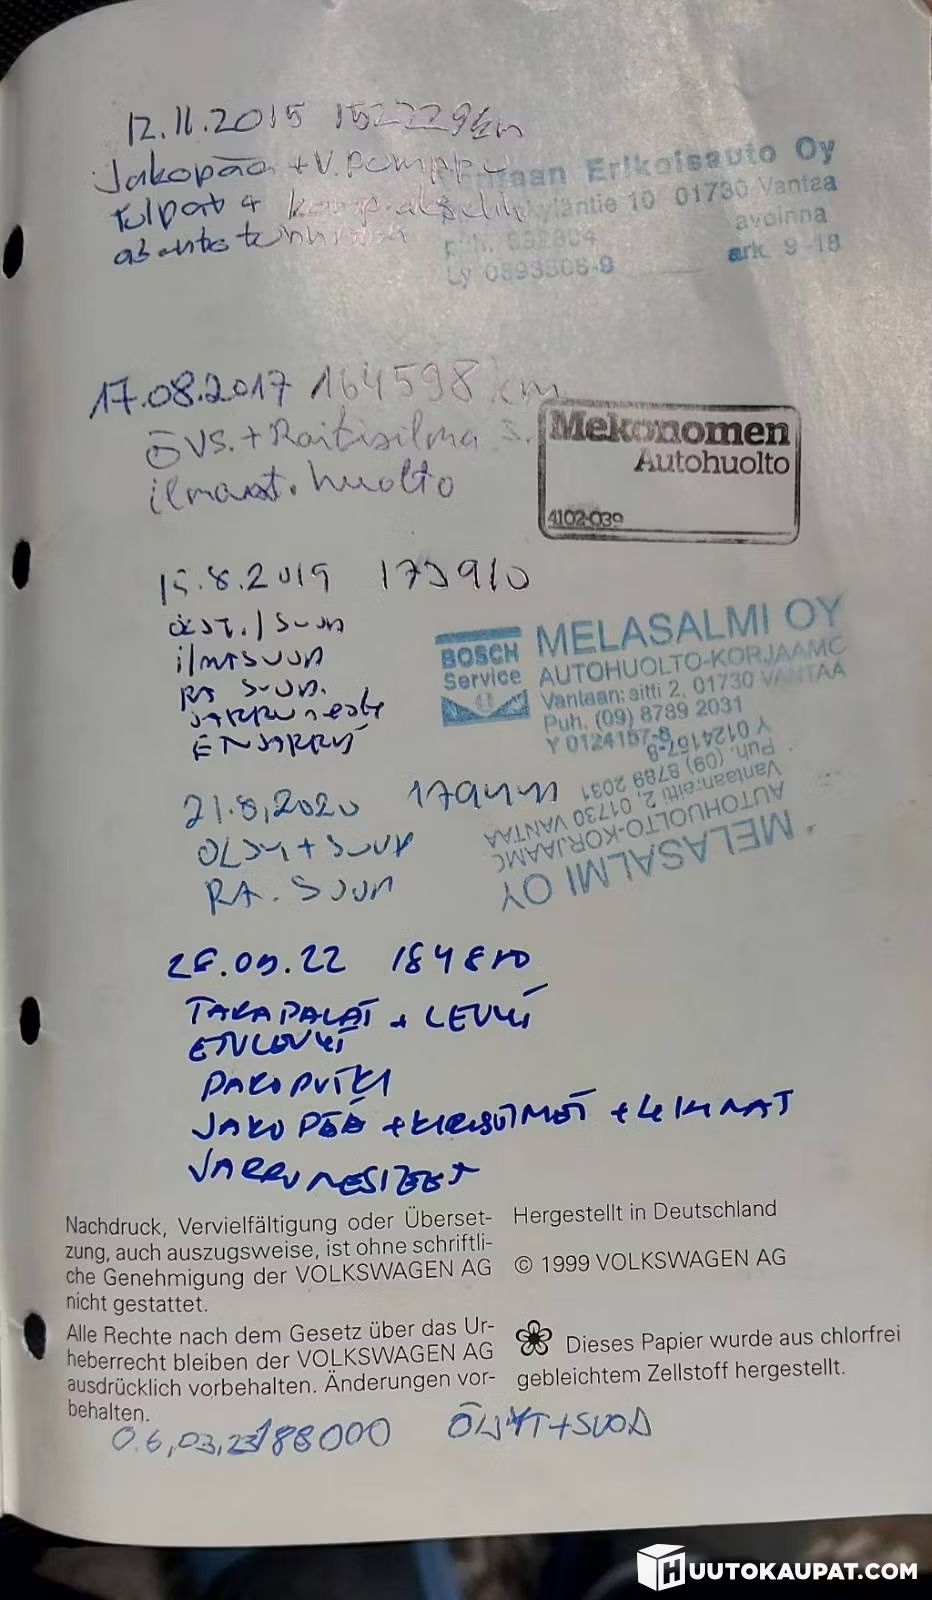 12.11.2015 152229km
Jakopää + V.pomppu
tulpat +
Erikoisauto Oy
10 01730 Vantaa
avoinna
ark. 9-18
Ly 0893506-9
17.08.2017 164598 km
ÖVS. + Raitisilma s.
ilmast. huolto
Mekonomen
Autohuolto
4102-039
15.8.2019 173910
ilmsuun
RA SUUN.
BOSCH
Service
MELASALMI OY
AUTOHUOLTO-KORJAAMO
Vantaan: sitti 2, 01730 VANTAA
Puh. (09) 8789 2031
Y 0124157-8
Y 0124157-8
Puh. (09) 8789 2031
Vantaan: sitti 2, 01730 VANTAA
AUTOHUOLTO-KORJAAMO
MELASALMI OY
21.8,2020
RA. SUUN
26.09.22 184810
TAKAPALAT + LEVYT
ETULEVYT
PAKOPUTKI
JAKOPÄÄ + +
JARRUNESTEET
Nachdruck, Vervielfältigung oder Überset-
zung, auch auszugsweise, ist ohne schriftli-
che Genehmigung der VOLKSWAGEN AG
nicht gestattet.
Alle Rechte nach dem Gesetz über das Ur-
heberrecht bleiben der VOLKSWAGEN AG
ausdrücklich vorbehalten. Änderungen vor-
behalten.
Hergestellt in Deutschland
© 1999 VOLKSWAGEN AG
Dieses Papier wurde aus chlorfrei
gebleichtem Zellstoff hergestellt.
0.6,03,23/188000 ÖLJYT+SUOD
HUUTOKAUPAT.COM